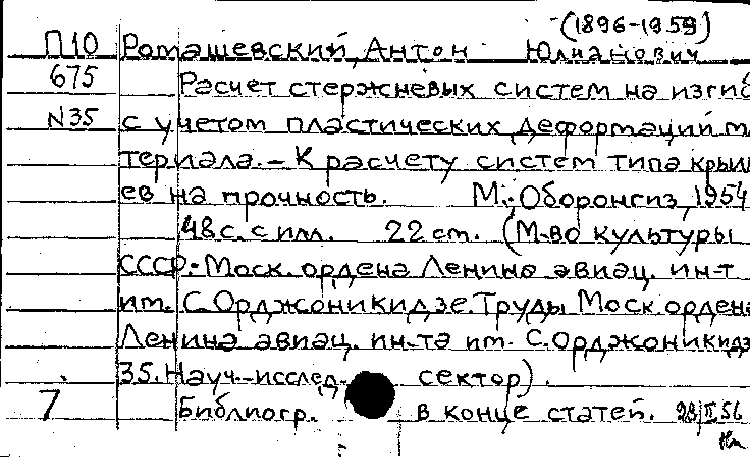 (1896-1959)
П10 Ромашевский, Антон Юлианович
675 Расчет стержневых систем на изгиб
N35 с учетом пластических деформаций ма
териала. — К расчету систем типа крыль
ев на прочность. М., Оборонгиз, 1954
48 с. с илл. 22 см. (М-во культуры
СССР. Моск. ордена Ленина авиац. ин-т
им. С. Орджоникидзе. Труды Моск. ордена
Ленина авиац. ин-та им. С. Орджоникидзе
35. Науч.-исслед. сектор).
7 Библиогр. в конце статей. 28/II 56